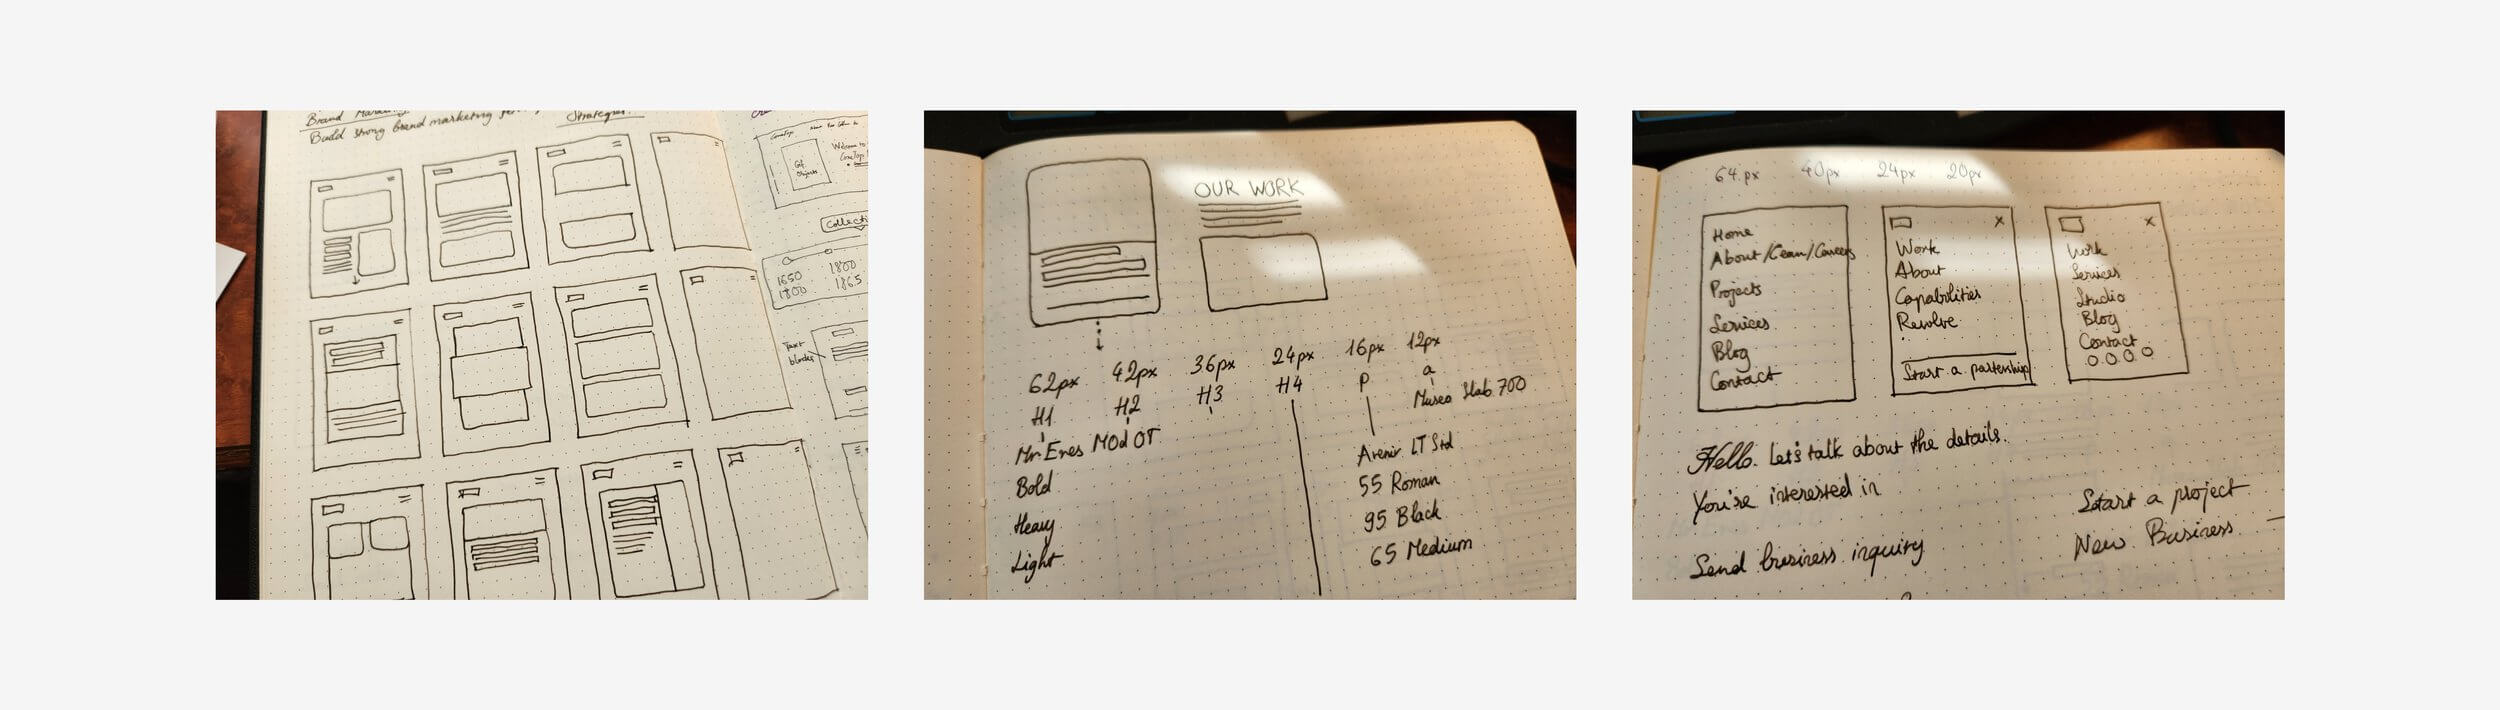 Build strong brand marketing
Strategies.
Get
Objects
Welcome to
1650
1800
1800
1865
Text
blocks
OUR WORK
62px 42px 36px 24px 16px 12px
H1 H2 H3 H4 P a
Museo Slab 700
Mr Eves MOd OT
Bold
Heavy
Light
Avenir LT Std
55 Roman
95 Black
65 Medium
64px 40px 24px 20px
Home
About/Team/Careers
Projects
Services
Blog
Contact
X
Work
About
Capabilities
Resolve
Start a partnership
X
Work
Services
Studio
Blog
Contact
Hello. Let's talk about the details.
You're interested in
Send business inquiry
Start a project
New Business